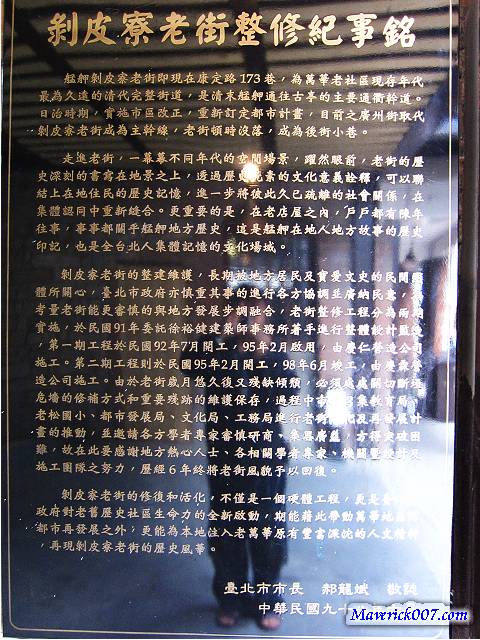 剝皮寮老街整修紀事銘
艋舺剝皮寮老街即現在康定路173巷，為萬華老社區現存年代
最為久遠的清代完整街道，是清末艋舺通往古亭的主要通衢幹道。
日治時期，實施市區改正，重新訂定都市計畫，目前之廣州街取代
剝皮寮老街成為主幹線，老街頓時沒落，成為後街小巷。
走進老街，一幕幕不同年代的空間場景，躍然眼前，老街的歷
史深刻的書寫在地景之上，透過歷史元素的文化意義詮釋，可以聯
結上在地住民的歷史記憶，進一步將彼此久已疏離的社會關係，在
集體認同中重新縫合。更重要的是，在老店屋之內，戶戶都有陳年
往事，事事都關乎艋舺地方歷史，這是艋舺在地人地方故事的歷史
印記，也是全台北人集體記憶的文化場域。
剝皮寮老街的整建維護，長期被地方居民及寶愛文史的民間
體所關心，臺北市政府亦慎重其事的進行各方協調並廣納民意，
考量老街能更審慎的與地方發展步調融合，老街整修工程分為兩期
實施，於民國91年委託徐裕健建築師事務所著手進行整體設計監造
，第一期工程於民國92年7月開工，95年2月啟用，由慶仁營造公司
施工。第二期工程則於民國95年2月開工，98年6月竣工，由慶霖營
造公司施工。由於老街歲月悠久復又殘缺傾頹，必須處處關切斷垣
危墻的修補方式和重要殘跡的維護保存，過程中市府召集教育局、
老松國小、都市發展局、文化局、工務局進行老街活化及再發展計
畫的推動，並邀請各方學者專家審慎研商、集思廣益，方得突破困
難，故在此要感謝地方熱心人士、各相關學者專家、機關暨設計及
施工團隊之努力，歷經6年終將老街風貌予以回復。
剝皮寮老街的修復和活化，不僅是一個硬體工程，更是
政府對老舊歷史社區生命力的全新啟動，期能藉此帶動萬華地區
都市再發展之外，更能為本地住入老萬華原有豐富深沈的人文精神
，再現剝皮寮老街的歷史風華。
臺北市市長 郝龍斌 敬誌
中華民國九十
Maverick007.com